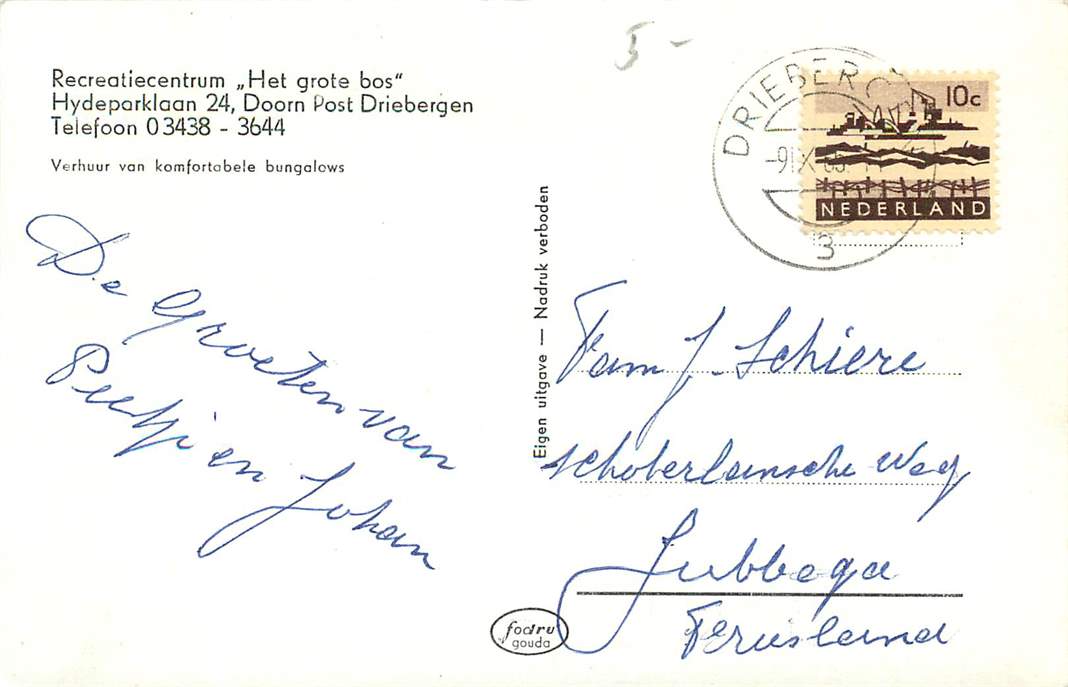 5 -
Recreatiecentrum „Het grote bos"
Hydeparklaan 24, Doorn Post Driebergen
Telefoon 03438 - 3644
Verhuur van komfortabele bungalows
DRIEBERG
-9 IX 65
3
10c
NEDERLAND
De Groeten van
Peetji en Johan
Eigen uitgave — Nadruk verboden
Fam J. Schiere
Schoterlansche Weg
Jubbega
Feruslând
fodru
gouda